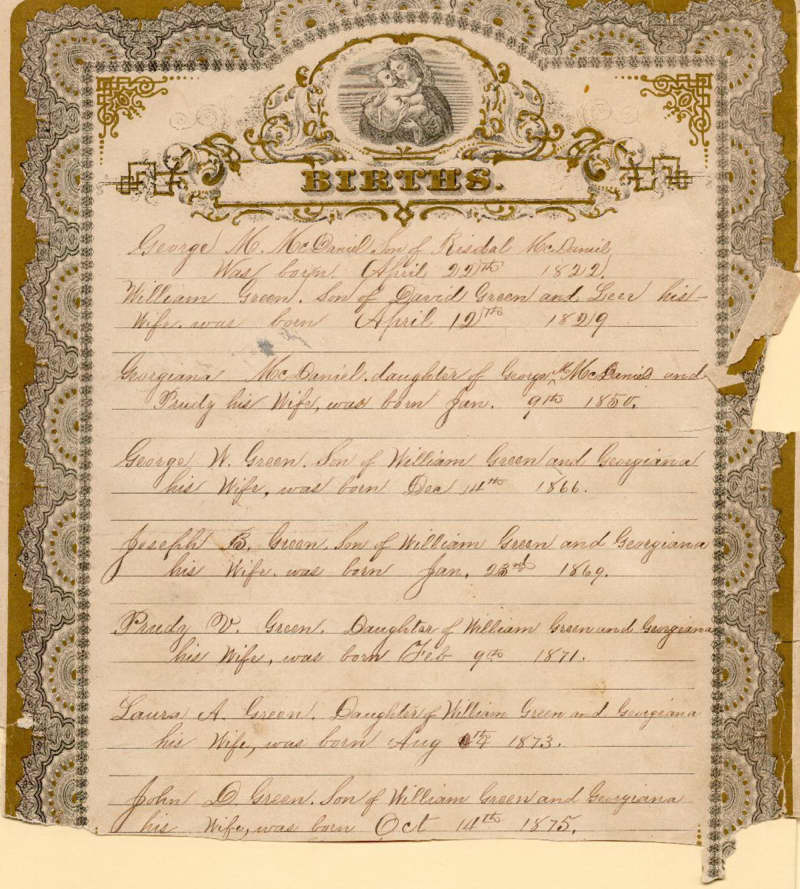 BIRTHS.
George M. McDaniel Son of Risdal McDaniel
Was born April 22th 1822.
William Green. Son of David Green and Leer his
Wife. was born April 12th 1829
Georgiana McDaniel. daughter of George M McDaniel and
Prudy his Wife, was born Jan. 9th 1850.
George W. Green. Son of William Green and Georgiana
his Wife, was born Dec 14th 1866.
Joseph B. Green. Son of William Green and Georgiana
his Wife. was born Jan. 23rd 1869.
Prudy V. Green. Daughter of William Green and Georgiana
his Wife, was born Feb 9th 1871.
Laura A. Green. Daughter of William Green and Georgiana
his Wife, was born Aug 1873.
John D Green. Son of William Green and Georgiana
his Wife, was born Oct 14th 1875.